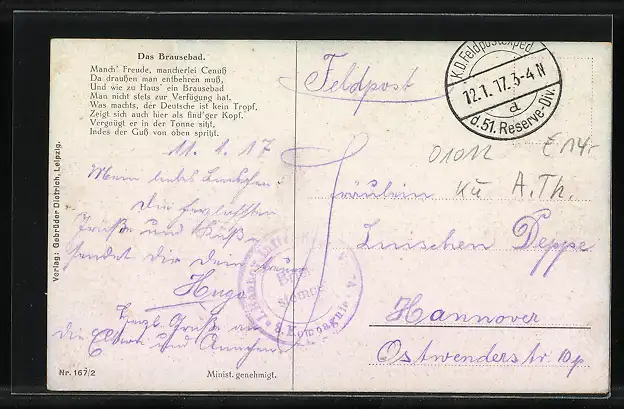 Das Brausebad.
Manch' Freude, mancherlei Genuß
Da draußen man entbehren muß,
Und wie zu Haus' ein Brausebad
Man nicht stets zur Verfügung hat.
Was machts, der Deutsche ist kein Tropf,
Zeigt sich auch hier als find'ger Kopf.
Vergnügt er in der Tonne sitzt,
Indes der Guß von oben spritzt.
11. 1. 17
Mein liebes
Die herzlichsten
Grüße und Küße
sendet Dir Dein
Hugo
Herzl. Grüße an
die Eltern und Annchen
Verlag: Gebrüder Dietrich, Leipzig.
Nr. 167/2
Minist. genehmigt.
Feldpost
K.D. Feldpostexped.
12.1.17. 3-4 N
d
d. 51. Reserve-Div.
01012
£ 14,-
Kü A.Th.
Fräulein
Luischen Deppe
Hannover
Ostwenderstr 10p
Brief-
stempel
8. Kompagnie